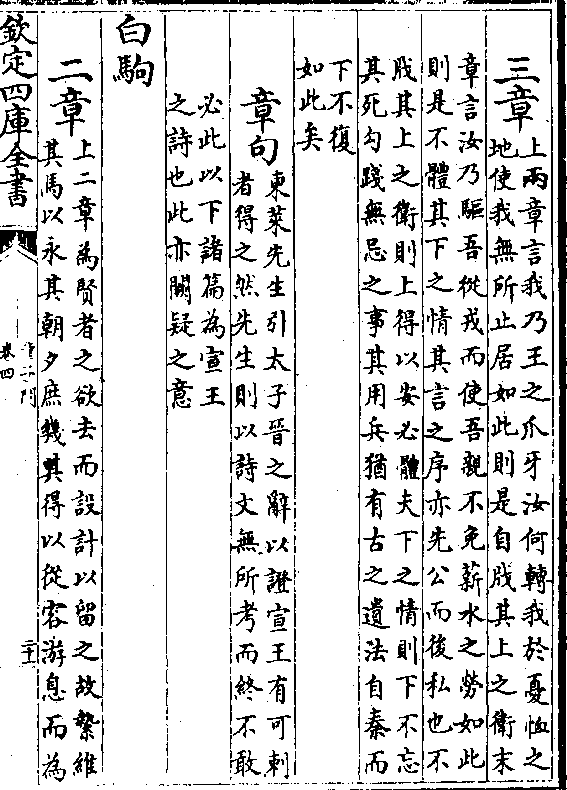 三章上兩章言我乃王之爪牙汝何轉我於憂恤之
地使我無所止居如此則是自戕其上之衛末
章言汝乃驅吾從戎而使吾親不免薪水之勞如此
則是不體其下之情其言之序亦先公而後私也不
戕其上之衛則上得以安必體夫下之情則下不忘
其死勾踐無忌之事其用兵猶有古之遺法自秦而
下不復
如此矣
章句東萊先生引太子晉之辭以證宣王有可刺
者得之然先生則以詩文無所考而終不敢
必此以下諸篇為宣王
之詩也此亦闕疑之意
白駒
二章上二章為賢者之欲去而設計以留之故縶維
其馬以永其朝夕庶幾其得以從容游息而為
欽定四庫全書
卷四
二十五